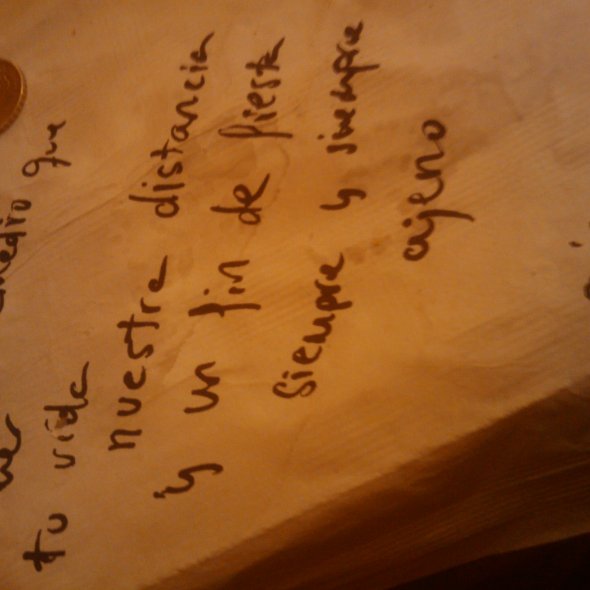 que
tu vida
nuestra distancia
y un fin de fiesta
Siempre y siempre
ajeno